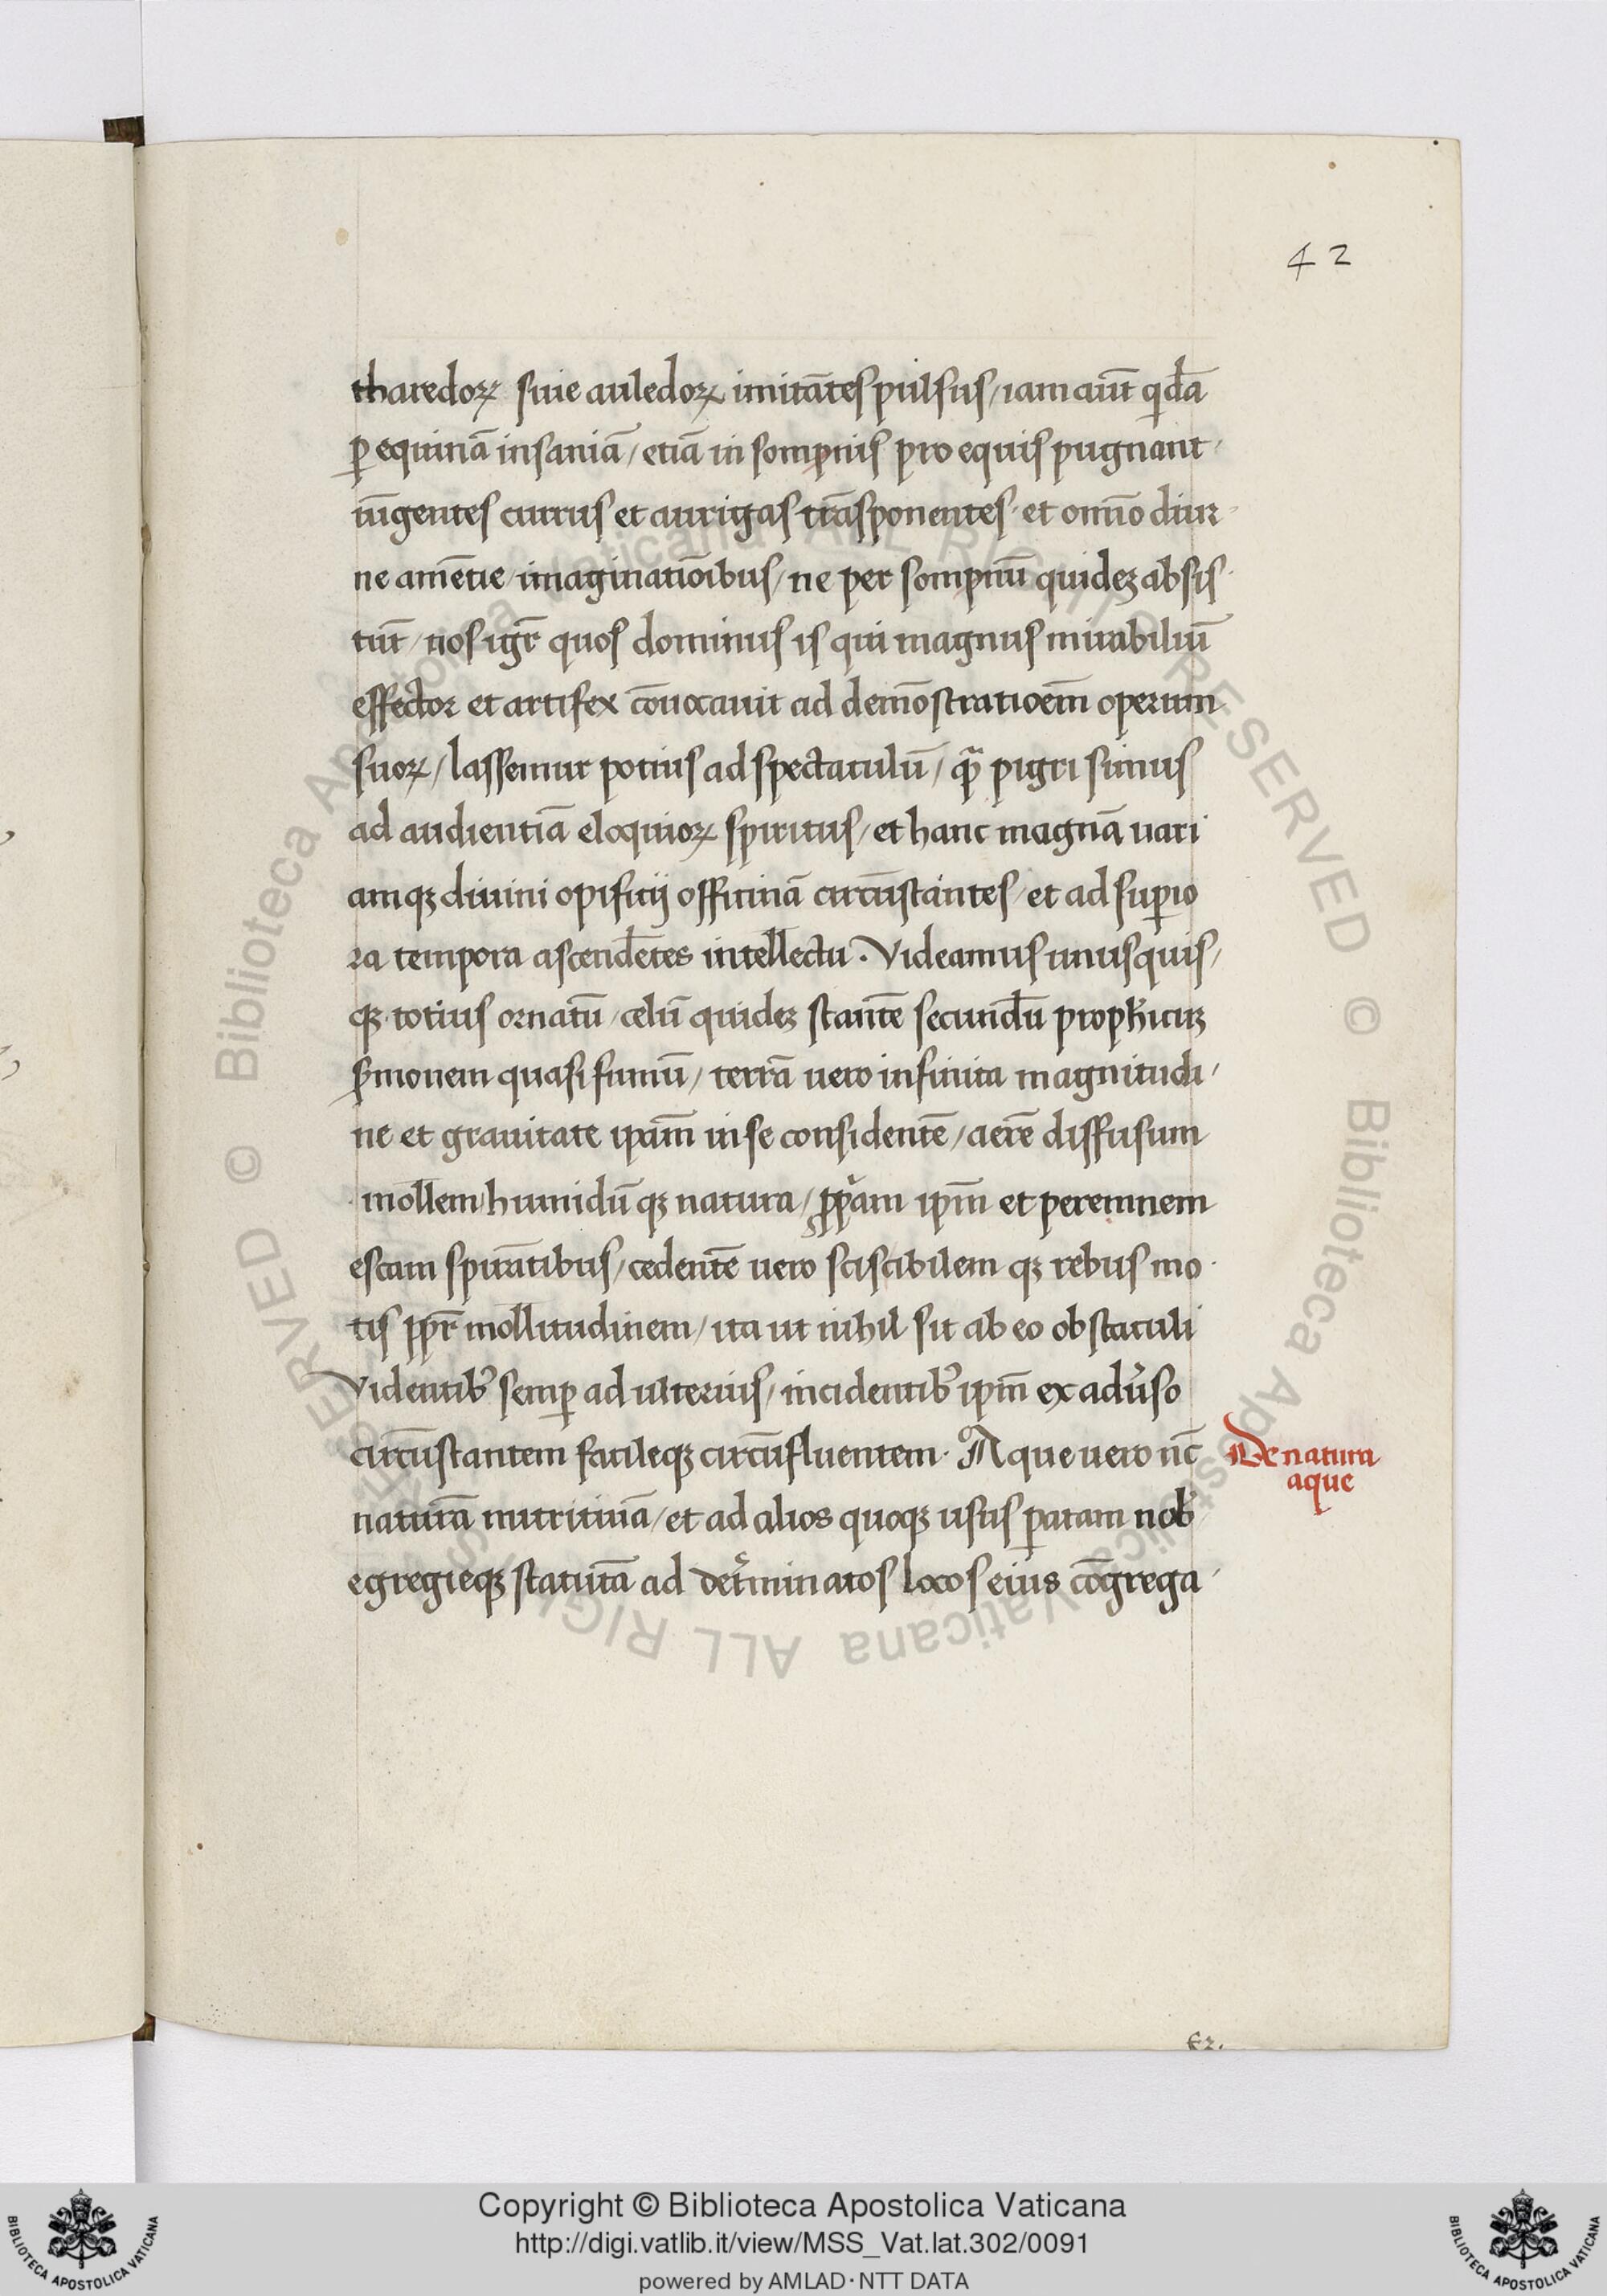 42
tharedoꝝ siue auledoꝝ imitātes pulsus / iam aiūt qdā
ꝑ equinā insaniā / etiā in sompnis pro equis pugnant
iūgentes currus et aurigas trāsponentes · et omīo diur
ne amētie / imaginatiōibus / ne per sompnū quideꝫ absis
tūt / nos igr̄ quos dominus is qui magnus mirabiliū
effector et artifex cōuocauit ad demōstratioem̄ operum
suoꝝ / lassemur potius ad spectaculū / qͣ̄ pigri simus
ad audientiā eloquioꝝ spiritus / et hanc magnā uari
amqꝫ diuini opificij officinā circūstantes / et ad suꝑio
ra tempora ascendētes intellectu · Videamus unusquis /
qꝫ · totius ornatū / celū quideꝫ stantē secundū prophicuꝫ
s̄monem quasi fumū / terrā uero infinita magnitudi /
ne et grauitate ipam̄ in se considentē / aerē diffusum
mollem humidū qꝫ natura / ꝓpͥam ipm̄ et peremnem
escam spirātibus / cedentē uero sciscibilem qꝫ rebus mo
tis ꝓpr̄ mollitudinem / ita ut nihil sit ab eo obstaculi
Videntibꝰ semꝑ ad ulterius / incidentibꝰ ipm̄ ex adu̓so
circūstantem facileqꝫ circūfluentem · Aque uero nc̄
naturā nutritiuā / et ad alios quoqꝫ usus ꝑatam nob̓
egregieqꝫ statutā ad det̓minatos locos eius cōgrega
De natura
aque
Copyright © Biblioteca Apostolica Vaticana
http://digi.vatlib.it/view/MSS_Vat.lat.302/0091
powered by AMLAD·NTT DATA
BIBLIOTECA APOSTOLICA VATICANA
BIBLIOTECA APOSTOLICA VATICANA
© Biblioteca Apostolica Vaticana ALL RIGHTS RESERVED © Biblioteca Apostolica Vaticana ALL RIGHTS RESERVED